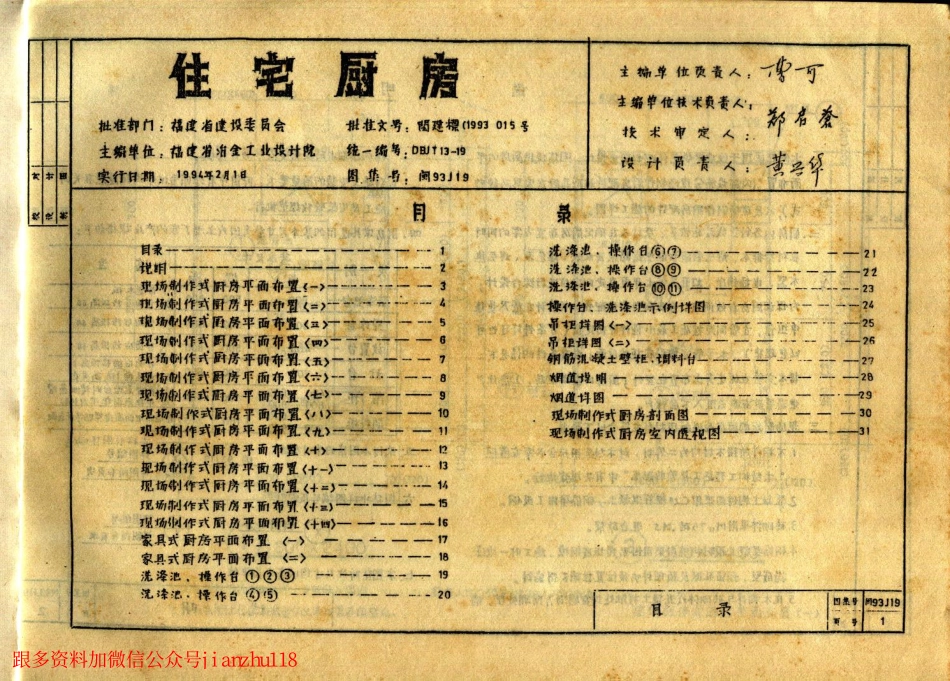 住宅厨房
批准部门：福建省建设委员会
批准文号：闽建标(1993 015号
主编单位：福建省冶金工业设计院
统一编号：DBJT13-19
实行日期：1994年2月1日
图集号：闽93J19
主编单位负责人：
主编单位技术负责人：
技术审定人：
设计负责人：
目 录
目录 1
说明 2
现场制作式厨房平面布置〈一〉 3
现场制作式厨房平面布置〈二〉 4
现场制作式厨房平面布置〈三〉 5
现场制作式厨房平面布置〈四〉 6
现场制作式厨房平面布置〈五〉 7
现场制作式厨房平面布置〈六〉 8
现场制作式厨房平面布置〈七〉 9
现场制作式厨房平面布置〈八〉 10
现场制作式厨房平面布置〈九〉 11
现场制作式厨房平面布置〈十〉 12
现场制作式厨房平面布置〈十一〉 13
现场制作式厨房平面布置〈十二〉 14
现场制作式厨房平面布置〈十三〉 15
现场制作式厨房平面布置〈十四〉 16
家具式厨房平面布置〈一〉 17
家具式厨房平面布置〈二〉 18
洗涤池、操作台①②③ 19
洗涤池、操作台④⑤ 20
洗涤池、操作台⑥⑦ 21
洗涤池、操作台⑧⑨ 22
洗涤池、操作台⑩⑪ 23
操作台、洗涤池示例详图 24
吊柜详图〈一〉 25
吊柜详图〈二〉 26
钢筋混凝土壁柜、调料台 27
烟道说明 28
烟道详图 29
现场制作式厨房剖面图 30
现场制作式厨房室内透视图 31
目 录
图集号 闽93J19
页号 1
跟多资料加微信公众号jianzhu118